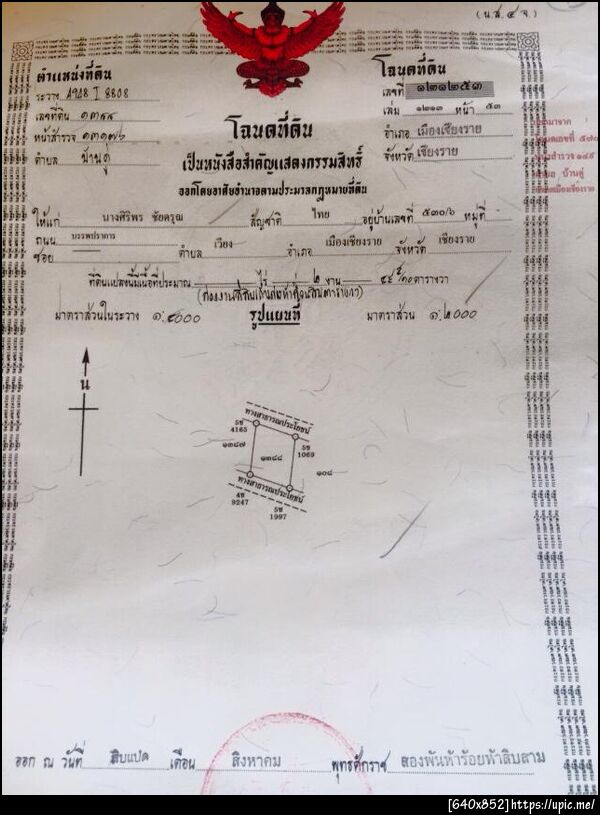 (น.ส.๔ จ.)
ตำแหน่งที่ดิน
ระวาง 4948 I 8808
เลขที่ดิน ๑๓๘๘
หน้าสำรวจ ๑๓๑๗๖
ตำบล บ้านดู่
โฉนดที่ดิน
เลขที่ ๑๒๑๒๕๓
เล่ม ๑๒๑๓ หน้า ๕๓
อำเภอ เมืองเชียงราย
จังหวัด เชียงราย
โฉนดที่ดิน
เป็นหนังสือสำคัญแสดงกรรมสิทธิ์
ออกโดยอาศัยอำนาจตามประมวลกฎหมายที่ดิน
ให้แก่ นางศิริพร ชัยดรุณ สัญชาติ ไทย อยู่บ้านเลขที่ ๕๓๐/๖ หมู่ที่
ถนน บรรพปราการ
ซอย ตำบล เวียง อำเภอ เมืองเชียงราย จังหวัด เชียงราย
ที่ดินแปลงนี้มีเนื้อที่ประมาณ ไร่ ๒ งาน ตารางวา
มาตราส่วนในระวาง ๑:๔๐๐๐ รูปแผนที่ มาตราส่วน ๑:๒๐๐๐
น
ทางสาธารณประโยชน์
5ช 4165
5ช 1069
๑๓๘๗
๑๓๘๘
๑๐๘
ทางสาธารณประโยชน์
4ช 9247
5ช 1997
ออก ณ วันที่ สิบแปด เดือน สิงหาคม พุทธศักราช สองพันห้าร้อยห้าสิบสาม
[640x852]https://upic.me/